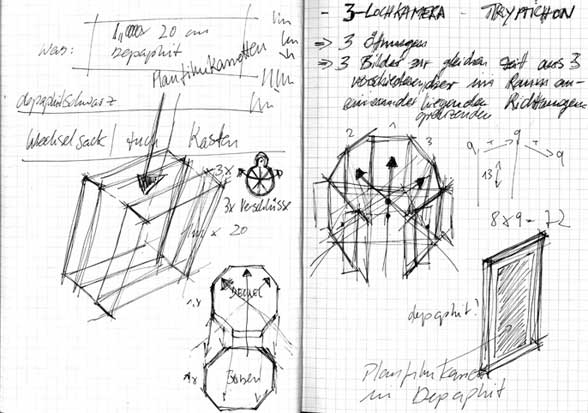 1,00 x 20 cm
Was: Depaphit
Planfilmkassetten
depaphitschwarz
Wechselsack / tuch / Kasten
3x
3x Verschlüsse
1m x 20
1x
DECKEL
1x
Boden
- 3-LOCHKAMERA - TRYPTICHON
⇒ 3 Öffnungen
⇒ 3 Bilder zur gleichen Zeit aus 3
verschiedenen im Raum an-
einander liegenden Richtungen
grenzenden
2 1 3
9 9 9
13
8x9 = 72
depaphit?
Planfilmkamera
in Depaphit